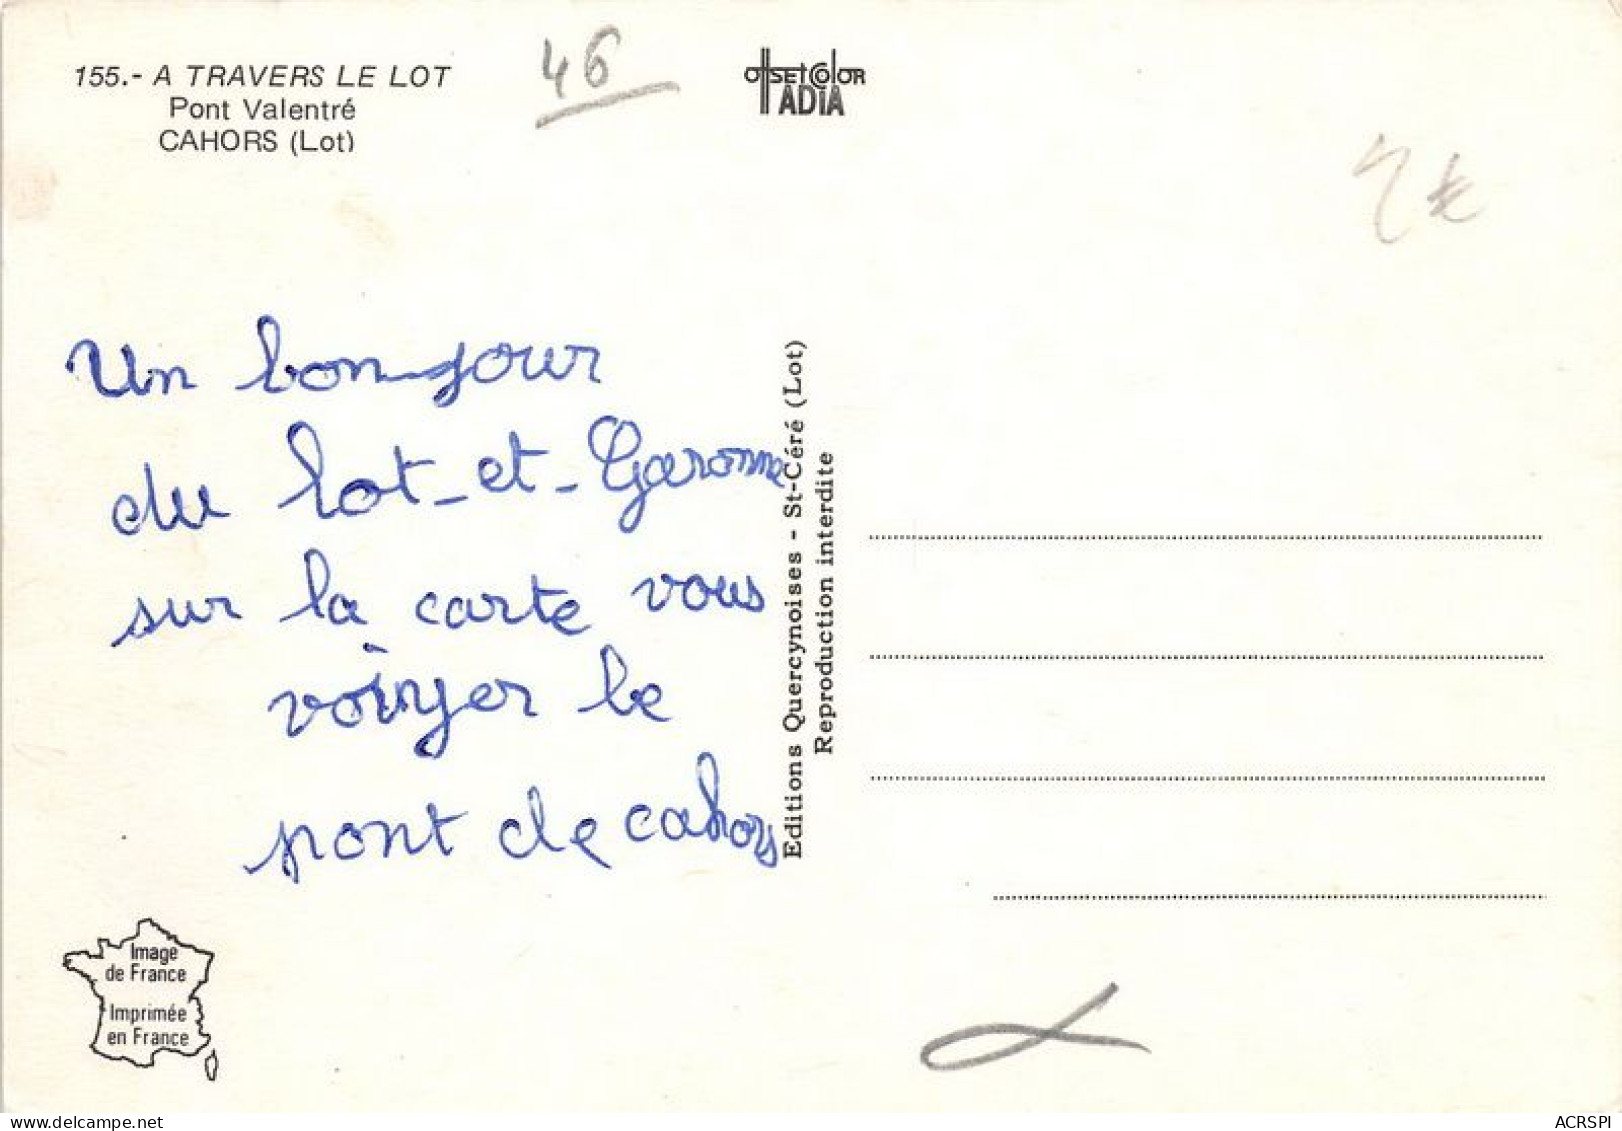 155.- A TRAVERS LE LOT
Pont Valentré
CAHORS (Lot)
46
OffSET COlOR
ADIA
2€
Un bonjour
du Lot-et-Garonne
sur la carte vous
voiyer le
pont de cahors
Editions Quercynoises - St-Céré (Lot)
Reproduction interdite
Image
de France
Imprimée
en France
www.delcampe.net
ACRSPI